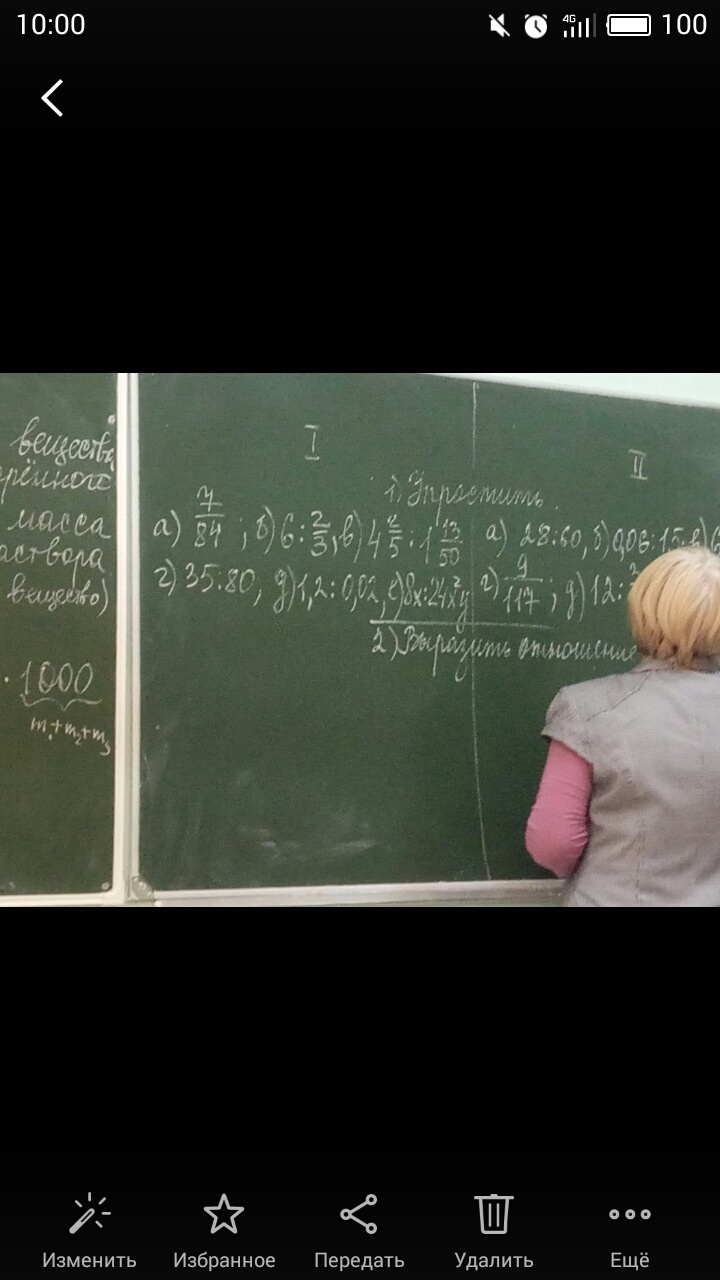 10:00 4G 100
вещества
масса
вещество)
· 1000
m₁+m₂+m₃
I
II
1) Упростить.
а) 7/84 ; б) 6 : 2/3 , в) 4 2/5 : 1 13/50
г) 35:80, д) 1,2 : 0,02, е) 8x:24x²y
а) 28:60, б) 0,06:15, в)
г) 9/117 ; д) 12 :
2) Выразить отношение
Изменить Избранное Передать Удалить Ещё